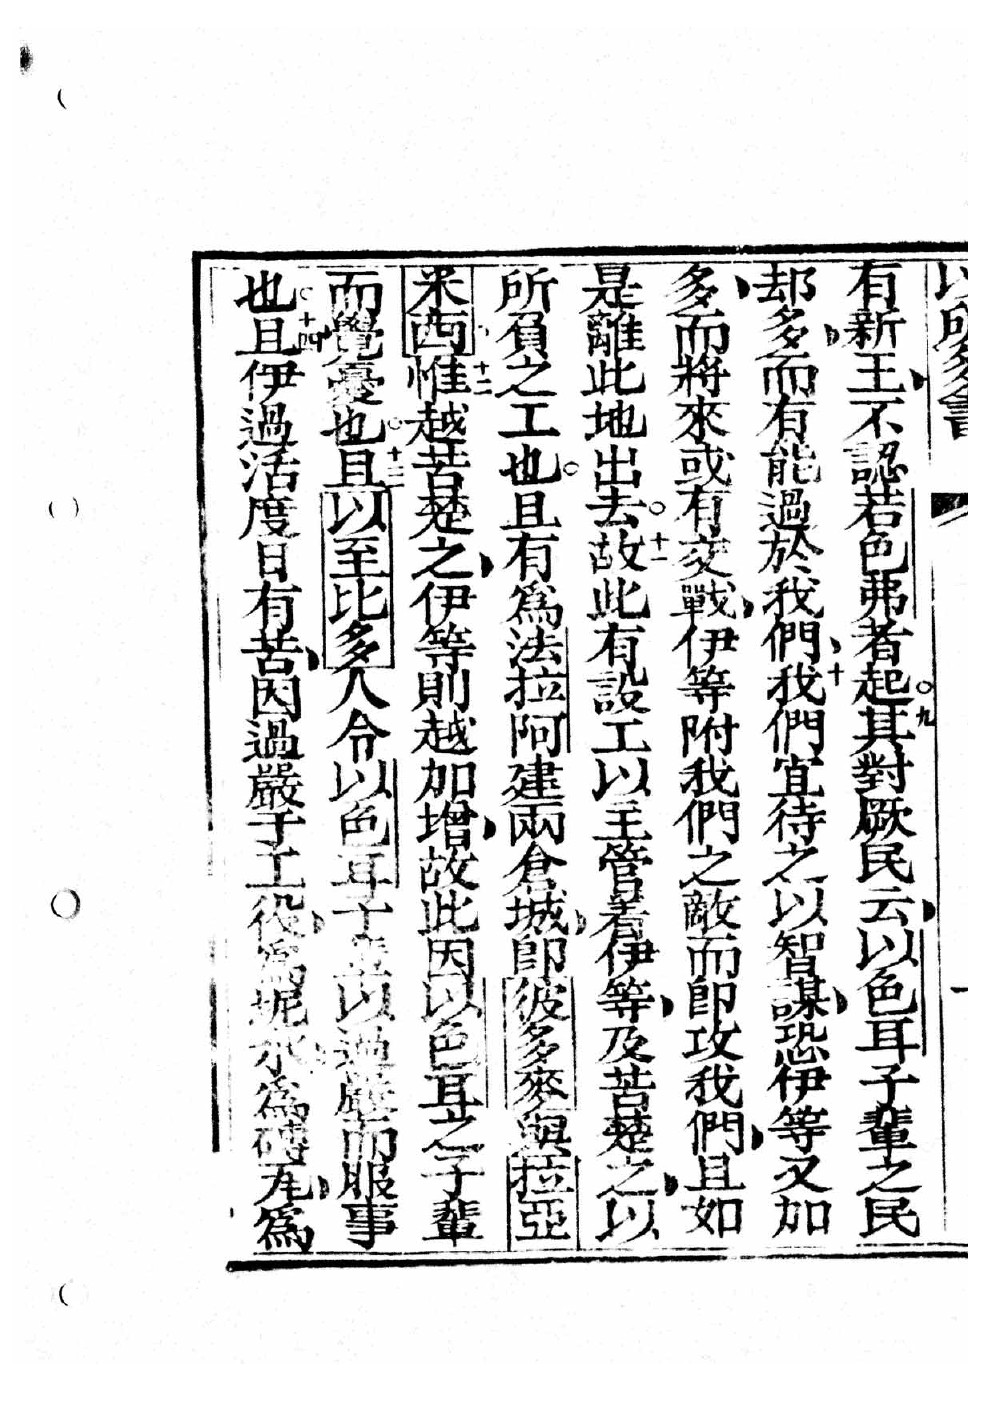 以所多書
有新王不認若色弗者起○九其對厥民云以色耳子輩之民
却多而有能過於我們十我們宜待之以智謀恐伊等又加
多而將來或有交戰伊等附我們之敵而卽攻我們且如
是離此地出去○十一故此有設工以主管着伊等及苦楚之以
所負之工也○且有爲法拉阿建兩倉城卽彼多麥與拉亞
米西十二惟越苦楚之伊等則越加增故此因以色耳之子輩
而覺憂也○十三且以至比多人令以色耳子輩以過嚴而服事
也○十四且伊過活度日有苦因過嚴于工役爲坭水爲磚瓦爲